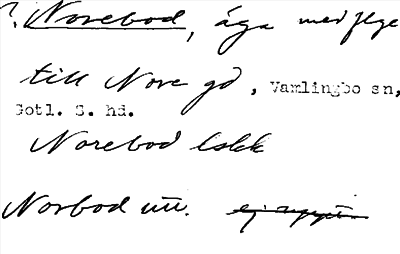 ?. Norebod, äga med flge
till Nore gd, Vamlingbo sn,
Gotl. S. hd.
Norebod lslk
Norbod utt.